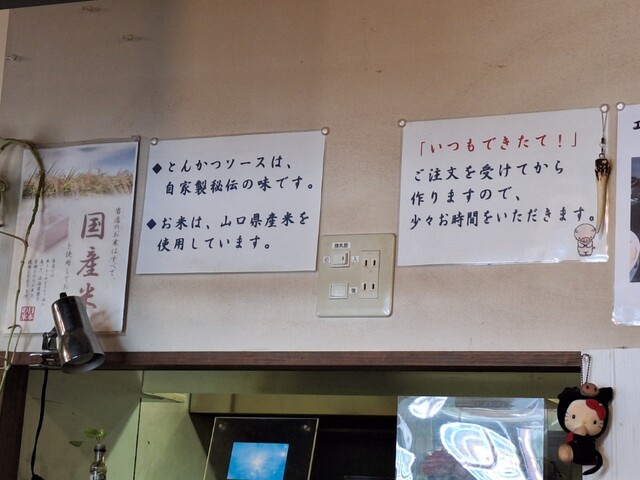 国産米
当店のお米はすべて、
◆とんかつソースは、
自家製秘伝の味です。
◆お米は、山口県産米を
使用しています。
「いつもできたて！」
ご注文を受けてから
作りますので、
少々お時間をいただきます。
入